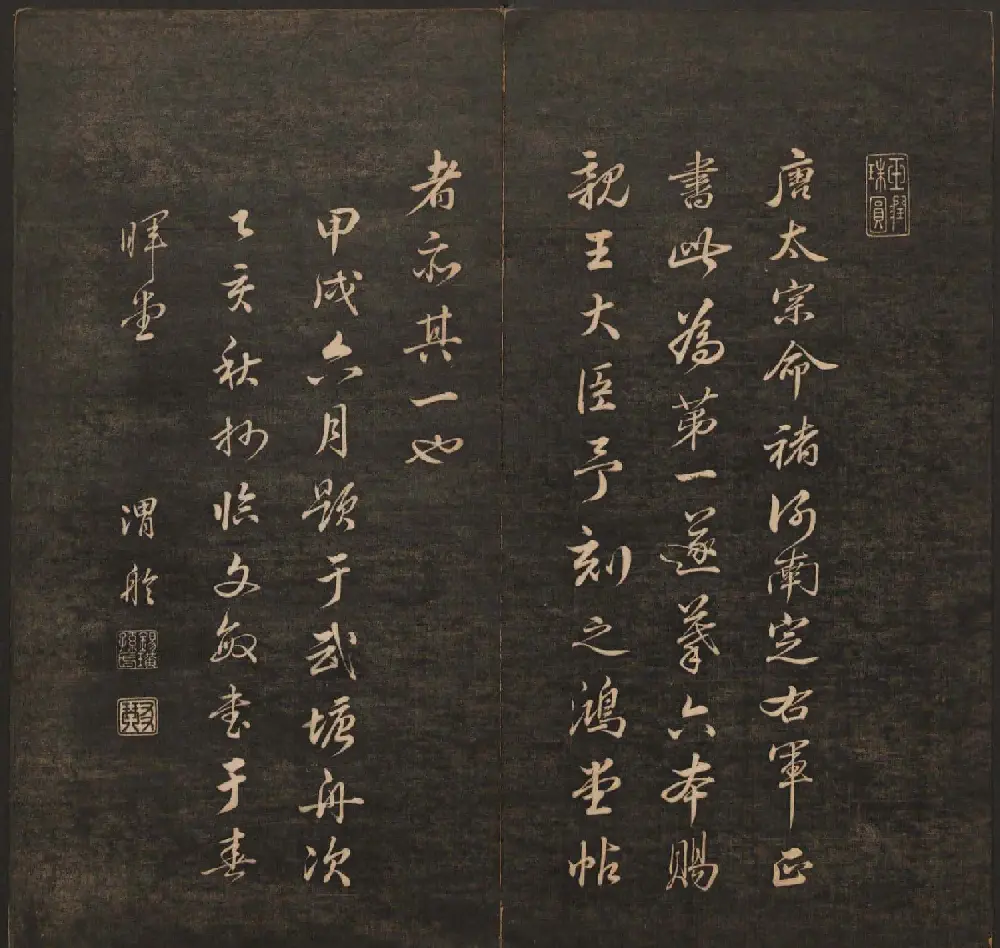 唐太宗命褚河南定右軍正
書此為第一遂摹六本賜
親王大臣予刻之鴻堂帖
者亦其一也
甲戌六月題于武塘舟次
乙亥秋抄臨文敏書于春
暉堂
渭